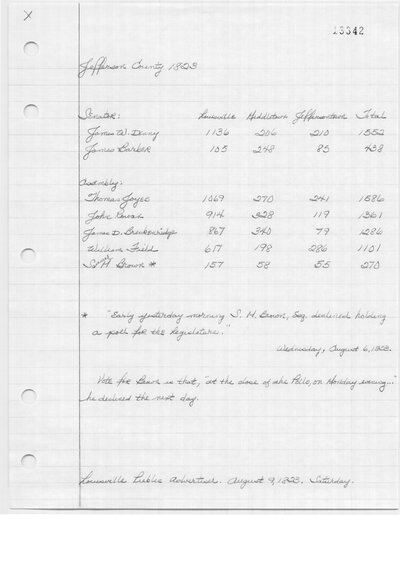 X
13342
Jefferson County 1823
Senator: Louisville Middletown Jeffersontown Total
James W. Denny 1136 206 210 1552
James Barker 105 248 85 438
Assembly:
Thomas Joyes 1069 270 241 1586
John Rowan 914 328 119 1361
James D. Breckinridge 867 340 79 1286
William Field 617 198 286 1101
S. H. Brown * 157 58 55 270
* "Early yesterday morning S. H. Brown, Esq. declined holding
a poll for the legislature."
Wednesday, August 6, 1823.
Vote for Brown is that, "at the close of the Polls, on Monday evening..."
he declined the next day.
Louisville Public Advertiser. August 9, 1823. Saturday.